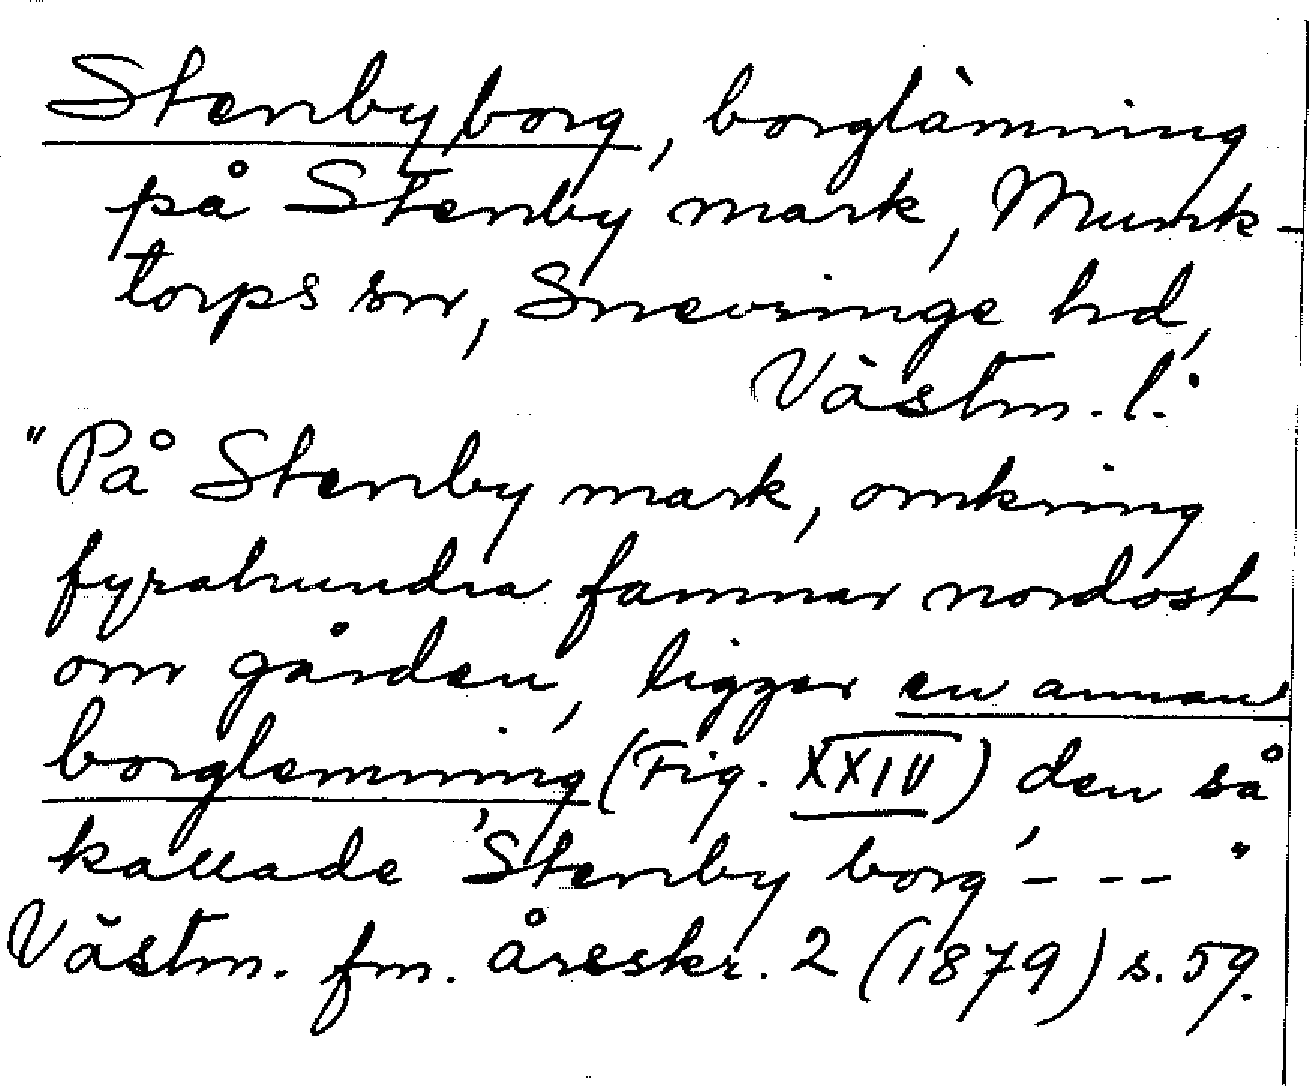 Stenby borg, borglämning
på Stenby mark, Munk-
torps sn, Snevringe hd,
Västm. l.
"På Stenby mark, omkring
fyrahundra famnar nordost
om gården, ligger en annan
borglemning (Fig. XXIV) den så
kallade 'Stenby borg' - - - "
Västm. fm. åreskr. 2 (1879) s. 59.